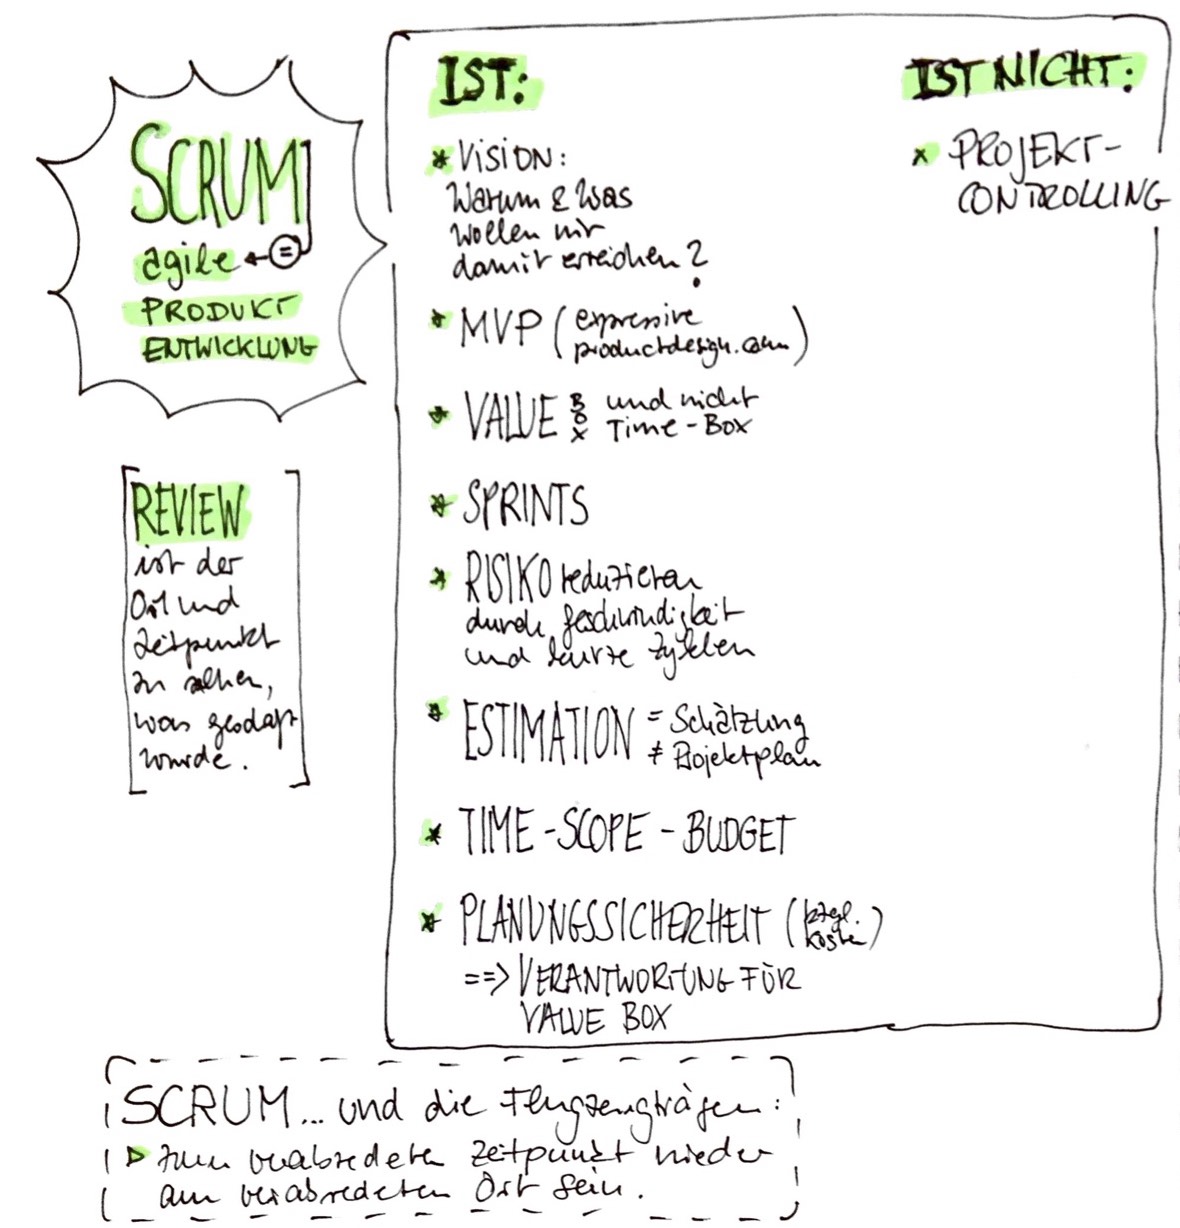 SCRUM
agile ← =
PRODUKT
ENTWICKLUNG
REVIEW
ist der
Ort und
Zeitpunkt
zu sehen,
was geschafft
wurde.
IST:
* VISION:
Warum & Was
wollen wir
damit erreichen?
* MVP (expressive
productdesign.com)
* VALUE BOX und nicht
Time-Box
* SPRINTS
* RISIKO reduzieren
durch Geschwindigkeit
und kurze Zyklen
* ESTIMATION = Schätzung
≠ Projektplan
* TIME-SCOPE-BUDGET
* PLANUNGSSICHERHEIT (bzgl.
Kosten)
==> VERANTWORTUNG FÜR
VALUE BOX
IST NICHT:
x PROJEKT-
CONTROLLING
SCRUM... und die Flugzeugträger:
▷ zum verabredeten Zeitpunkt wieder
am verabredeten Ort sein.